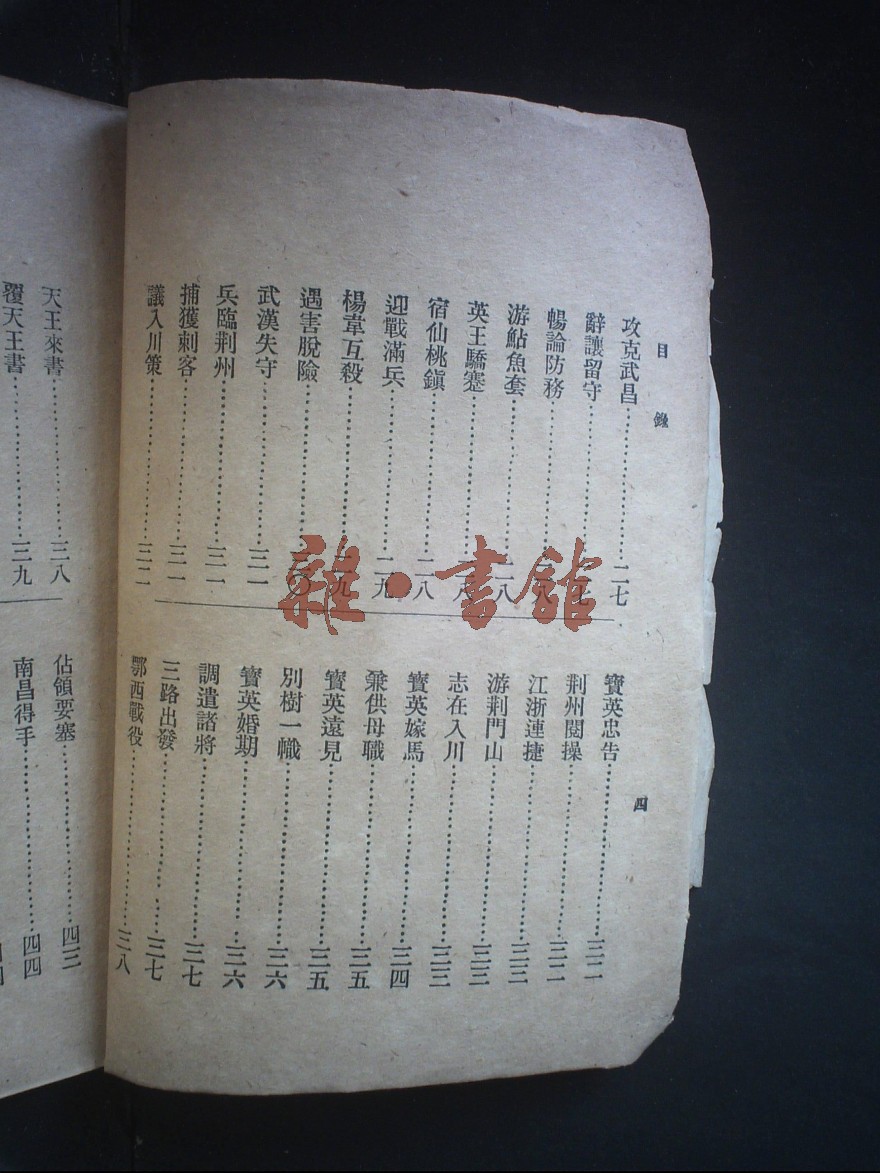 目錄
攻克武昌……二七
辭讓留守……二七
暢論防務……二八
游鮎魚套……二八
英王驕蹇……二八
宿仙桃鎮……二八
迎戰滿兵……二九
楊韋互殺……二九
遇害脫險……三〇
武漢失守……三一
兵臨荆州……三一
捕獲刺客……三一
議入川策……三二
寶英忠告……三二
荆州閱操……三二
江浙連捷……三三
游荆門山……三三
志在入川……三三
寶英嫁馬……三四
兼供母職……三五
寶英遠見……三五
別樹一幟……三六
寶英婚期……三六
調遣諸將……三七
三路出發……三七
鄂西戰役……三八
四
天王來書……三八
覆天王書……三九
佔領要塞……四三
南昌得手……四四
雜·書館